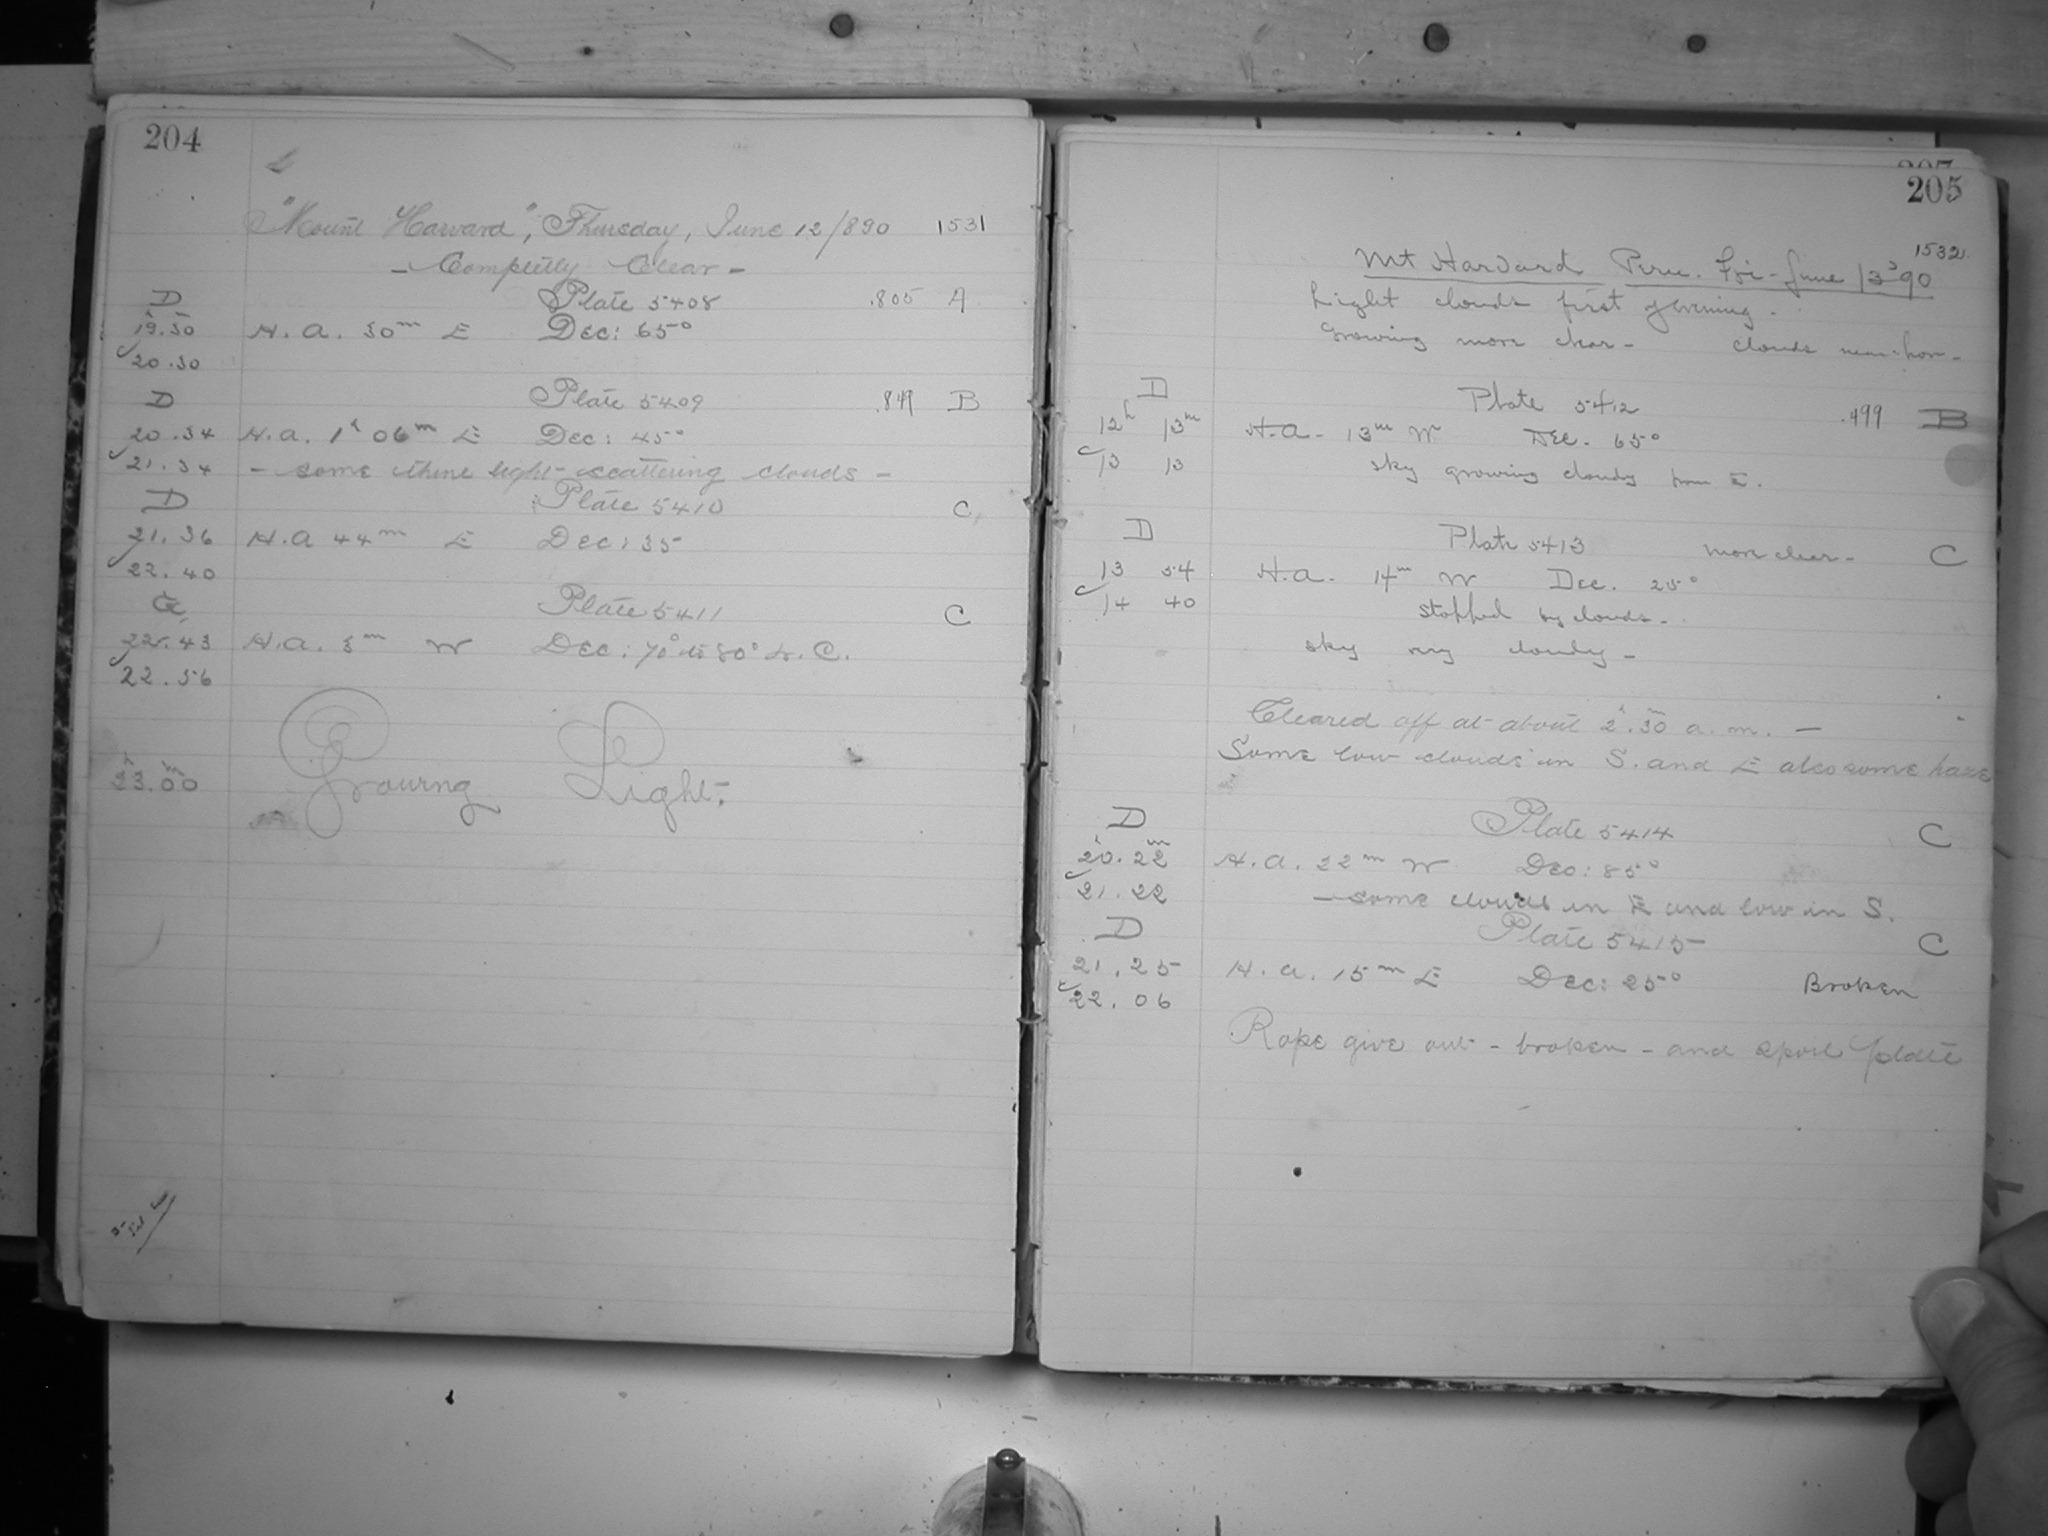 204
"Mount Harvard", Thursday, June 12/890 1531
- Completly Clear -
D Plate 5408 .805 A
19.30 H. A. 30m E Dec: 65°
20.30
D Plate 5409 .849 B
20.34 H. a. 1h 06m E Dec: 45°
21.34 - some thine light-scattering clouds -
D Plate 5410 C
21.36 H. A 44m E Dec: 35
22.40
Plate 5411 C
22.43 H. a. 3m W Dec: 70° to 80° L. C.
22.56
23.00 Grouing Light.
207
205
1532
Mt Harvard Peru. Fri- June 13 90
Light clouds first evening.
Growing more clear - clouds near hor-
D Plate 5412 .499 B
12h 13m H. a- 13m W Dec. 65°
13 13 sky growing cloudy from E.
D Plate 5413 more clear- C
13 54 H. a. 14m W Dec. 25°
14 40 stopped by clouds-
sky very cloudy -
Cleared off at about 2h.30m a. m. -
Some low clouds in S. and E also some haze
D Plate 5414 C
20h.22m H. a. 22m W Dec: 85°
21.22 - some clouds in E and low in S.
D Plate 5415 C
21.25 H. a. 15m E Dec: 25° Broken
22.06
Rope give out - broken - and spoil plate